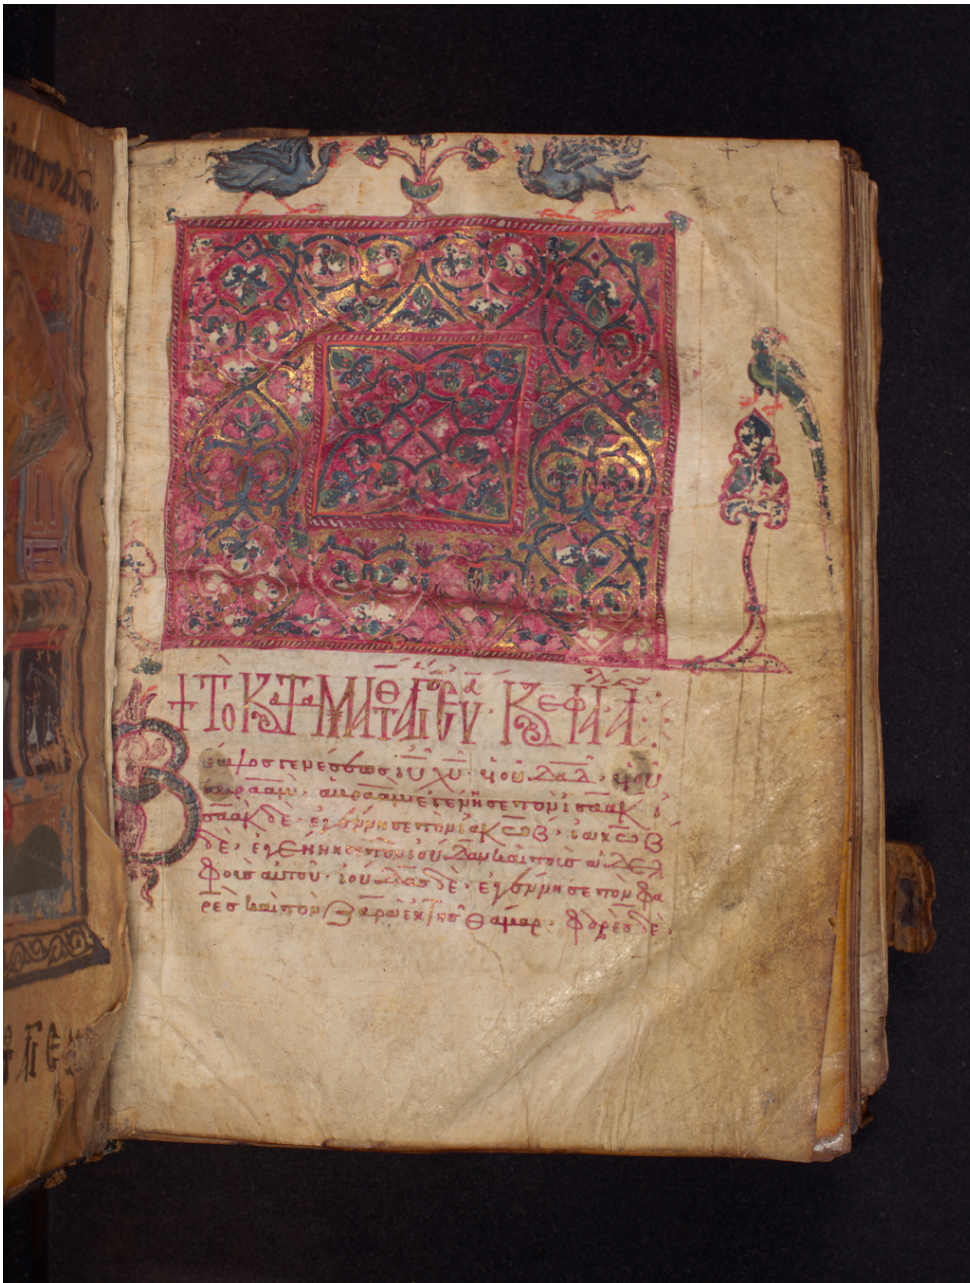 + Τὸ κατὰ Ματθαῖον ἅγιον εὐα. κεφά. ά:
Βίβλος γενέσεως ιῦ χῦ· υἱοῦ δαδ· υἱοῦ
ἀβραάμ· ἀβραὰμ ἐγέννησε τὸν ἰσαακ· ἰ
σαὰκ δὲ· ἐγέννησε τὸν ἰακωβ· ἰακωβ
δὲ· ἐγέννησε τὸν ἰούδαν καὶ τοὺσ ἀδελ
φοὺσ αὐτοῦ· ἰούδασ δὲ· ἐγέννησε τὸν φα
ρὲσ καὶ τὸν ζαρὰ ἐκ τῆσ θάμαρ· φαρὲσ δὲ·